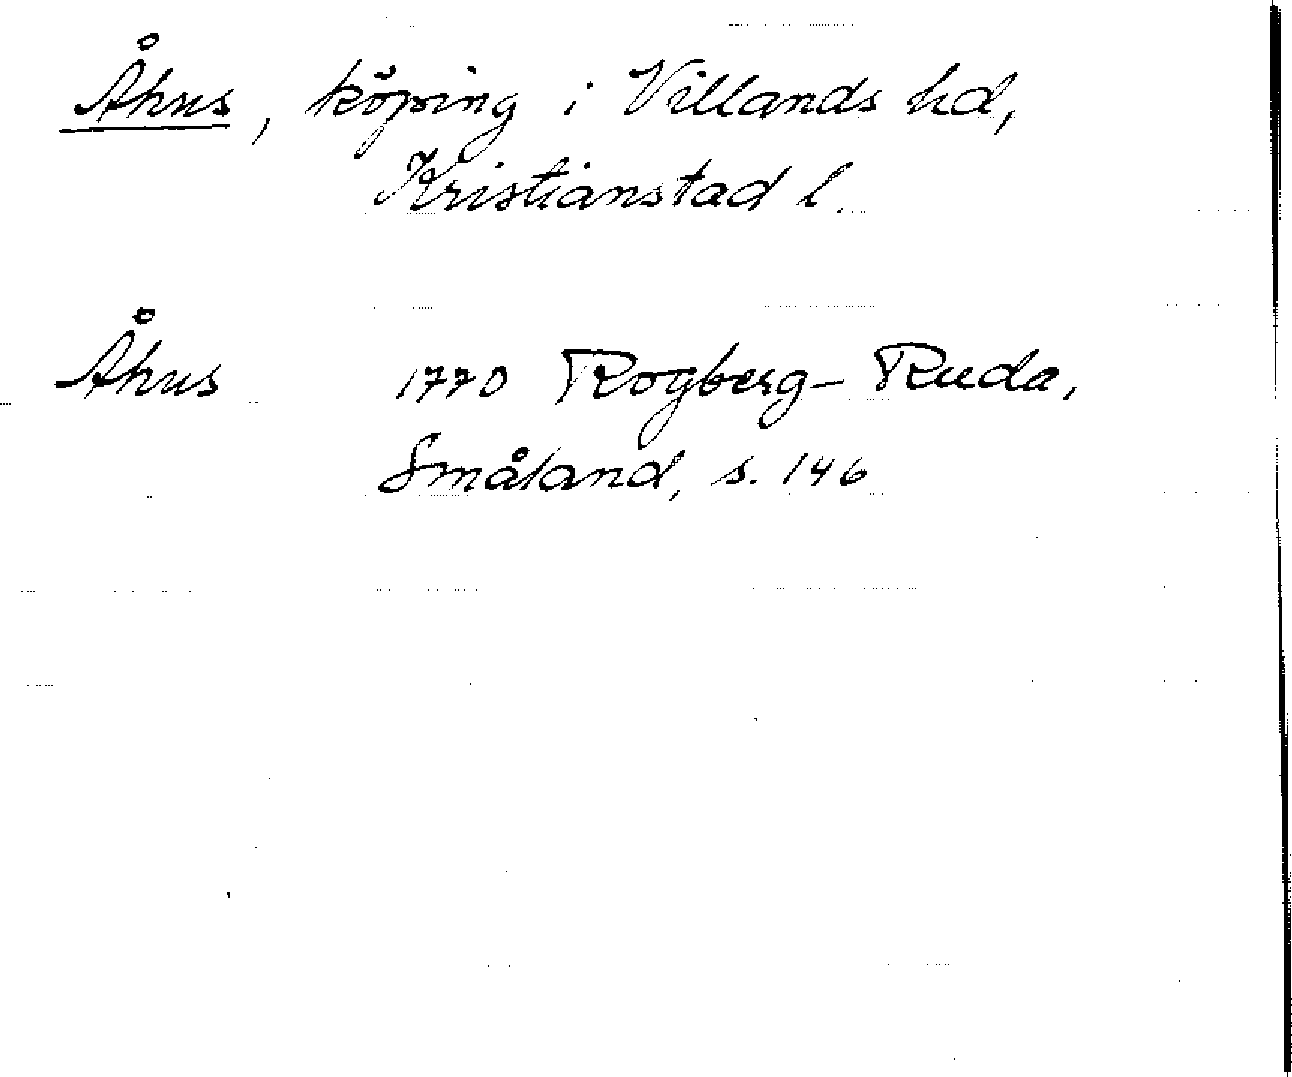 Åhus, köping i Villands hd,
Kristianstad l.
Åhus 1770 Rogberg-Ruda,
Småland, s. 146